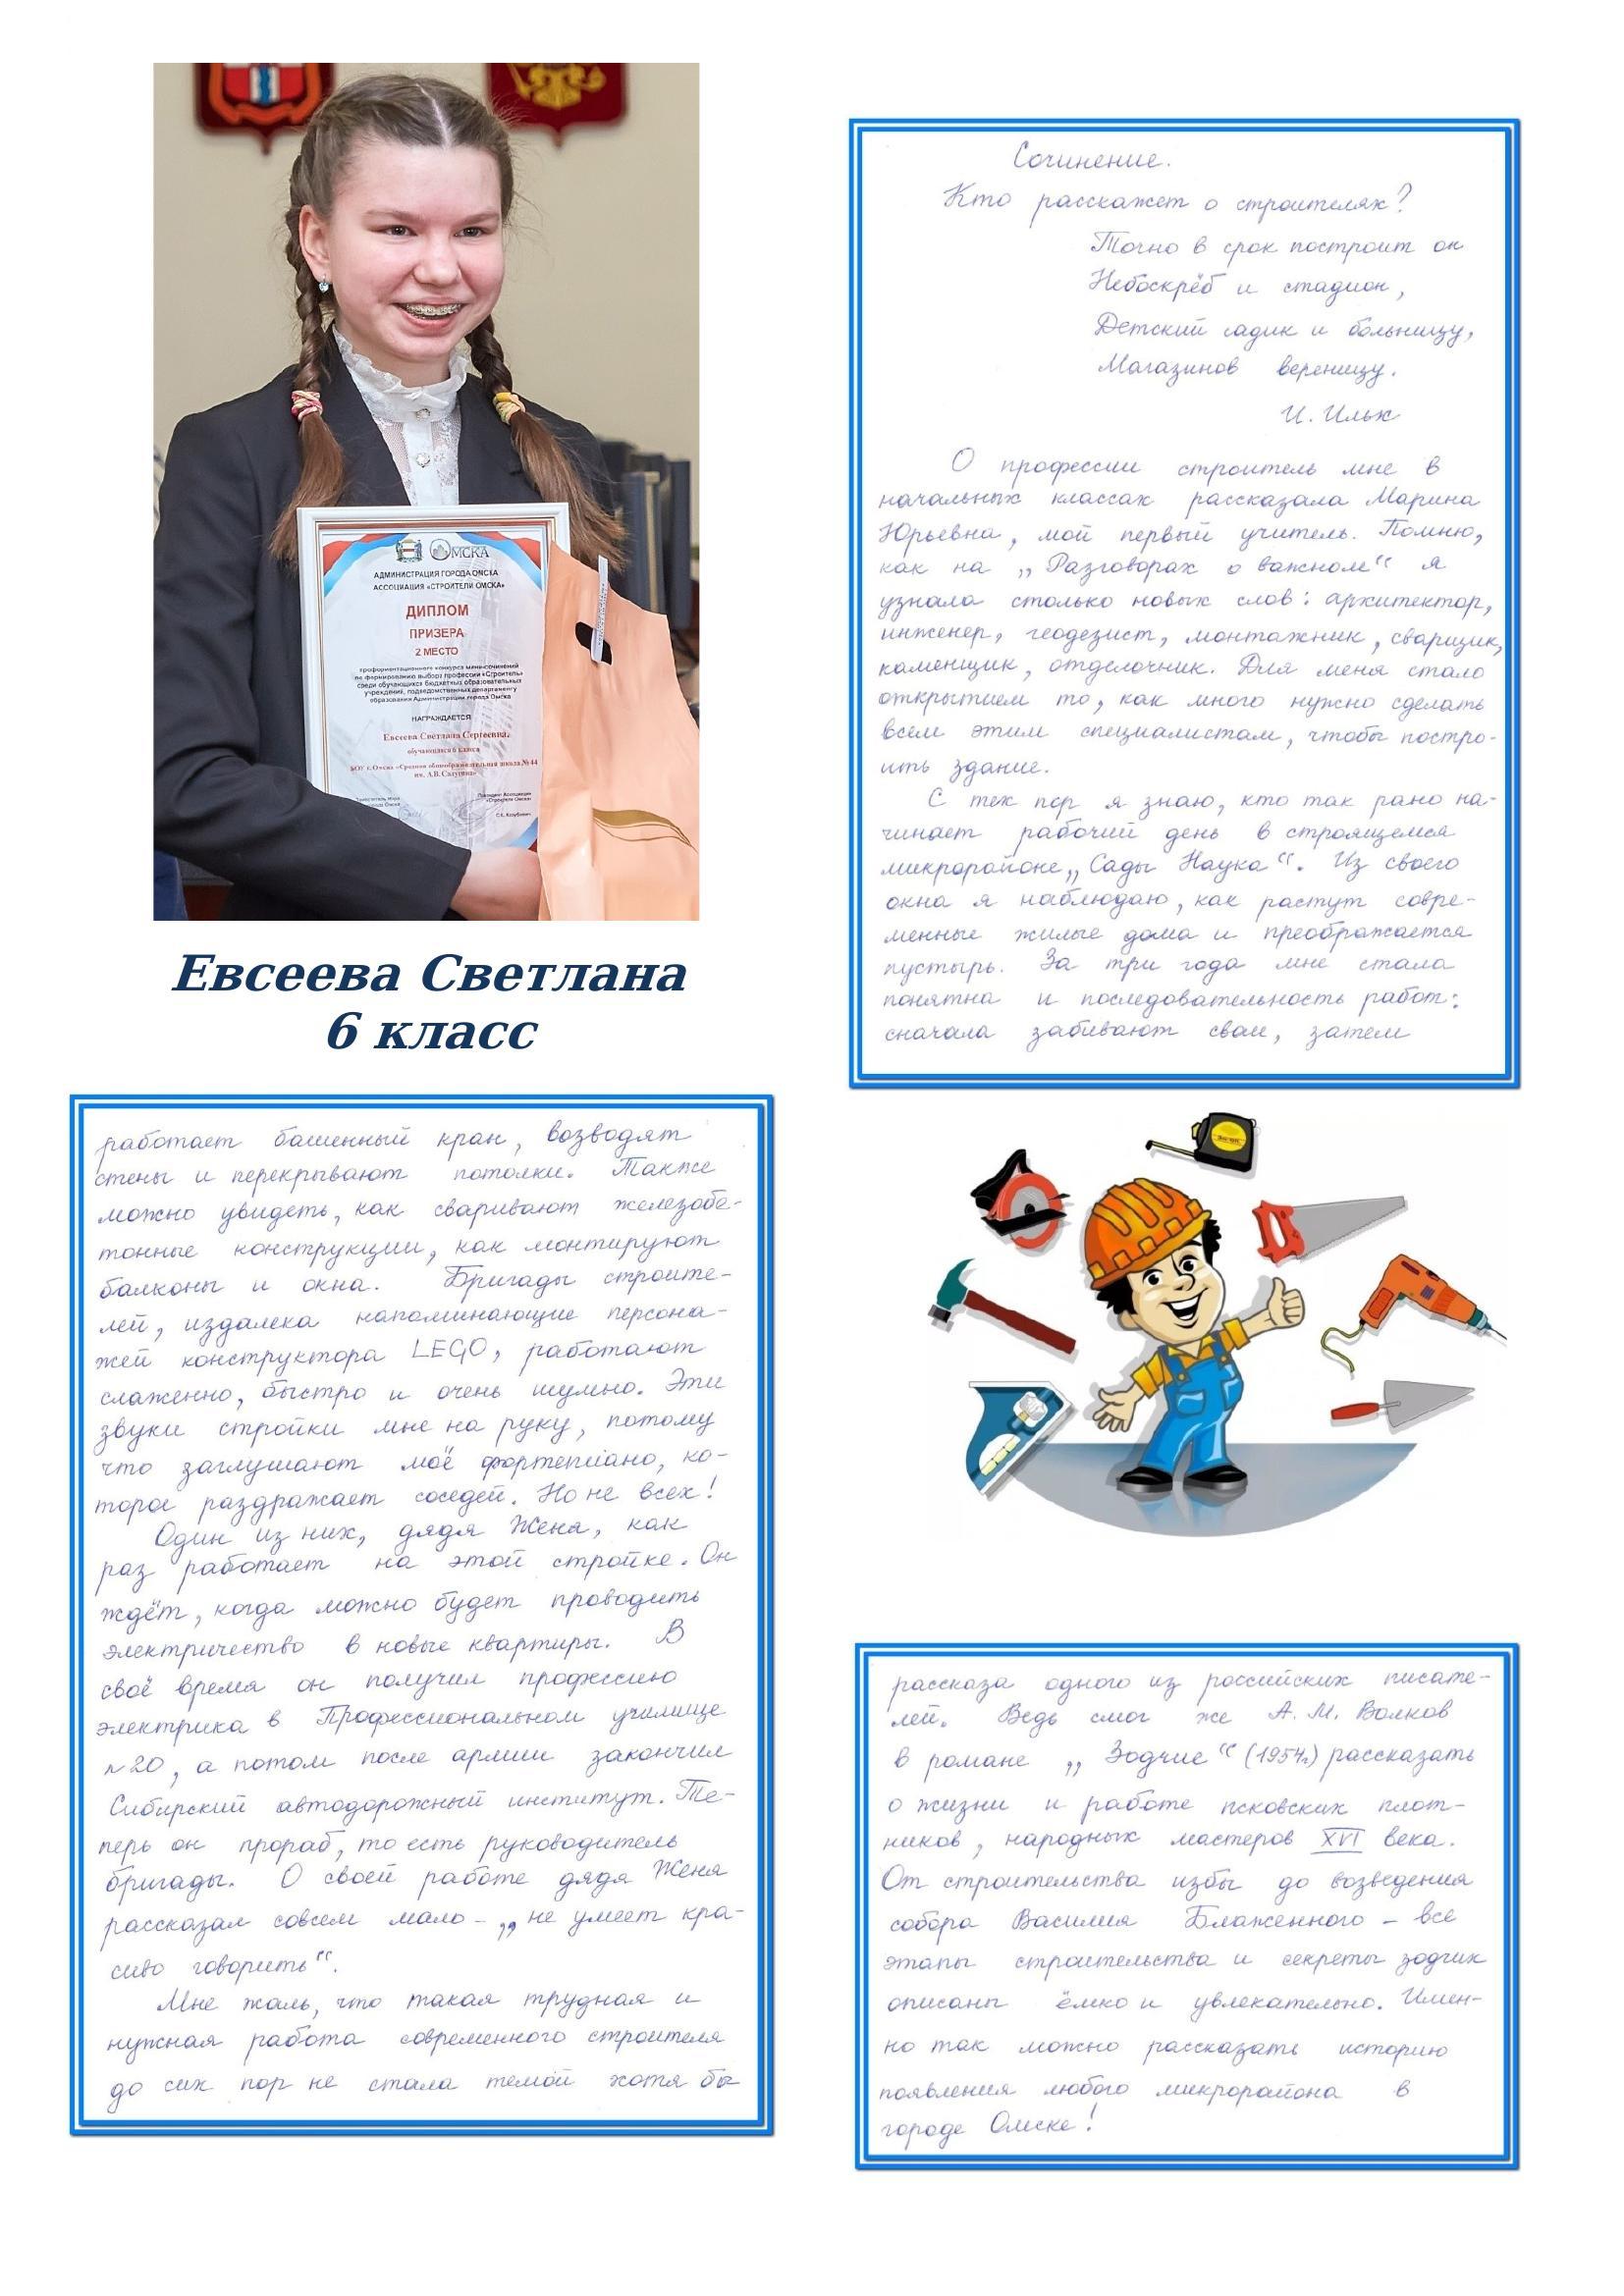 ОМСКА
АДМИНИСТРАЦИЯ ГОРОДА ОМСКА
АССОЦИАЦИЯ «СТРОИТЕЛИ ОМСКА»
ДИПЛОМ
ПРИЗЕРА
2 МЕСТО
профориентационного конкурса мини-сочинений
по формированию выбора профессии «Строитель»
среди обучающихся бюджетных образовательных
учреждений, подведомственных департаменту
образования Администрации города Омска
НАГРАЖДАЕТСЯ
Евсеева Светлана Сергеевна,
обучающаяся 6 класса
БОУ г. Омска «Средняя общеобразовательная школа № 44
Президент Ассоциации
«Строители Омска»
Евсеева Светлана
6 класс
Сочинение.
Кто расскажет о строителях?
Точно в срок построит он
Небоскрёб и стадион,
Детский садик и больницу,
Магазинов вереницу.
И. Ильх
О профессии строитель мне в
начальных классах рассказала Марина
Юрьевна, мой первый учитель. Помню,
как на „Разговорах о важном“ я
узнала столько новых слов: архитектор,
инженер, геодезист, монтажник, сварщик,
каменщик, отделочник. Для меня стало
открытием то, как много нужно сделать
всем этим специалистам, чтобы постро-
ить здание.
С тех пор я знаю, кто так рано на-
чинает рабочий день в строящемся
микрорайоне „Сады Наука“. Из своего
окна я наблюдаю, как растут совре-
менные жилые дома и преображается
пустырь. За три года мне стала
понятна и последовательность работ:
сначала забивают сваи, затем
работает башенный кран, возводят
стены и перекрывают потолки. Также
можно увидеть, как сваривают железобе-
тонные конструкции, как монтируют
балконы и окна. Бригады строите-
лей, издалека напоминающие персона-
жей конструктора LEGO, работают
слаженно, быстро и очень шумно. Эти
звуки стройки мне на руку, потому
что заглушают моё фортепиано, ко-
торое раздражает соседей. Но не всех!
Один из них, дядя Женя, как
раз работает на этой стройке. Он
ждёт, когда можно будет проводить
электричество в новые квартиры. В
своё время он получил профессию
электрика в Профессиональном училище
№20, а потом после армии закончил
Сибирский автодорожный институт. Те-
перь он прораб, то есть руководитель
бригады. О своей работе дядя Женя
рассказал совсем мало – „не умеет кра-
сиво говорить“.
Мне жаль, что такая трудная и
нужная работа современного строителя
до сих пор не стала темой хотя бы
рассказа одного из российских писате-
лей. Ведь смог же А. М. Волков
в романе „Зодчие“ (1954г.) рассказать
о жизни и работе псковских плот-
ников, народных мастеров XVI века.
От строительства избы до возведения
собора Василия Блаженного – все
этапы строительства и секреты зодчих
описаны ёмко и увлекательно. Имен-
но так можно рассказать историю
появления любого микрорайона в
городе Омске!